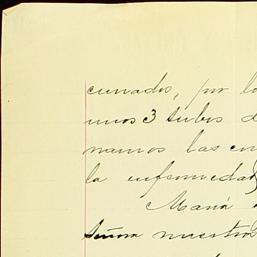 cunados, por lo
unos 3 tubos d
namos las con
la enfermedad
Mamá
Señora nuestros